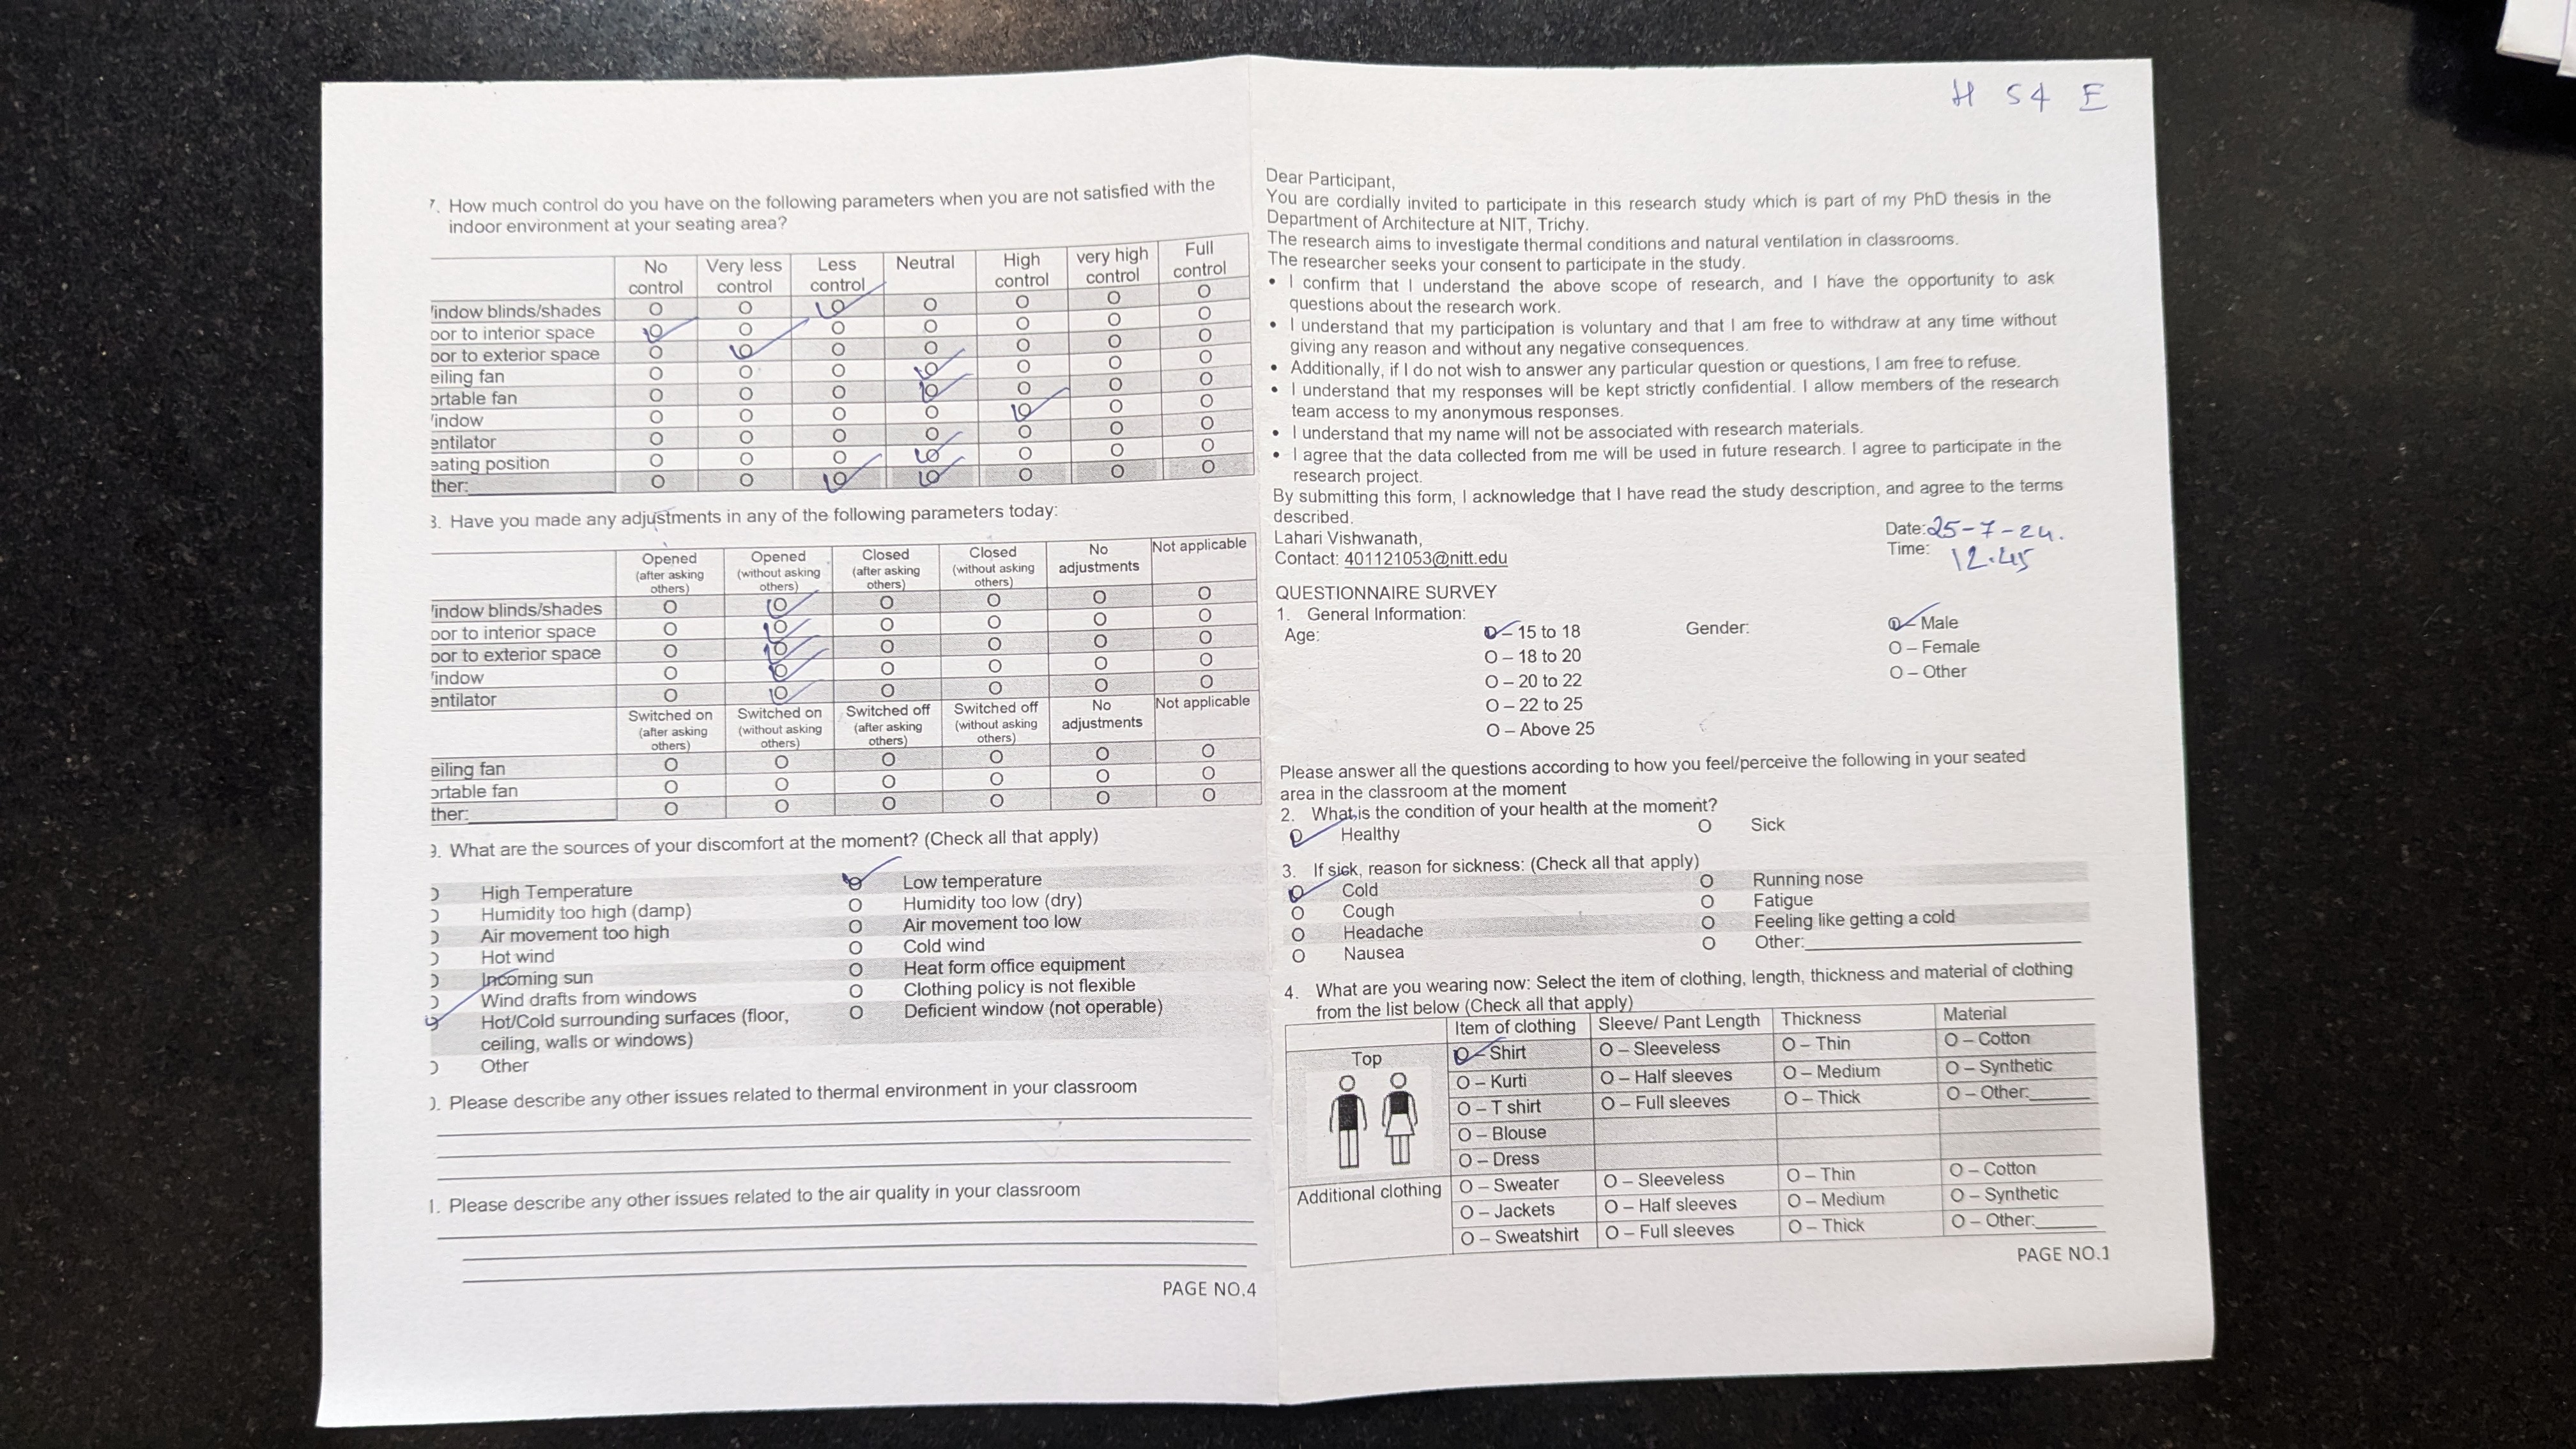 7. How much control do you have on the following parameters when you are not satisfied with the
indoor environment at your seating area?
No control Very less control Less control Neutral High control very high control Full control
indow blinds/shades O O O O O O O
oor to interior space O O O O O O O
oor to exterior space O O O O O O O
eiling fan O O O O O O O
ortable fan O O O O O O O
indow O O O O O O O
entilator O O O O O O O
eating position O O O O O O O
ther: O O O O O O O
3. Have you made any adjustments in any of the following parameters today:
Opened (after asking others) Opened (without asking others) Closed (after asking others) Closed (without asking others) No adjustments Not applicable
indow blinds/shades O O O O O O
oor to interior space O O O O O O
oor to exterior space O O O O O O
indow O O O O O O
entilator O O O O O O
Switched on (after asking others) Switched on (without asking others) Switched off (after asking others) Switched off (without asking others) No adjustments Not applicable
eiling fan O O O O O O
ortable fan O O O O O O
ther: O O O O O O
9. What are the sources of your discomfort at the moment? (Check all that apply)
High Temperature O Low temperature
Humidity too high (damp) O Humidity too low (dry)
Air movement too high O Air movement too low
Hot wind O Cold wind
Incoming sun O Heat form office equipment
Wind drafts from windows O Clothing policy is not flexible
Hot/Cold surrounding surfaces (floor, O Deficient window (not operable)
ceiling, walls or windows)
Other
). Please describe any other issues related to thermal environment in your classroom
1. Please describe any other issues related to the air quality in your classroom
PAGE NO.4
H S4 E
Dear Participant,
You are cordially invited to participate in this research study which is part of my PhD thesis in the
Department of Architecture at NIT, Trichy.
The research aims to investigate thermal conditions and natural ventilation in classrooms.
The researcher seeks your consent to participate in the study.
• I confirm that I understand the above scope of research, and I have the opportunity to ask
questions about the research work.
• I understand that my participation is voluntary and that I am free to withdraw at any time without
giving any reason and without any negative consequences.
• Additionally, if I do not wish to answer any particular question or questions, I am free to refuse.
• I understand that my responses will be kept strictly confidential. I allow members of the research
team access to my anonymous responses.
• I understand that my name will not be associated with research materials.
• I agree that the data collected from me will be used in future research. I agree to participate in the
research project.
By submitting this form, I acknowledge that I have read the study description, and agree to the terms
described.
Lahari Vishwanath,
Contact: 401121053@nitt.edu
Date: 25-7-24.
Time: 12.45
QUESTIONNAIRE SURVEY
1. General Information:
Age: O – 15 to 18 Gender: O – Male
O – 18 to 20 O – Female
O – 20 to 22 O – Other
O – 22 to 25
O – Above 25
Please answer all the questions according to how you feel/perceive the following in your seated
area in the classroom at the moment
2. What is the condition of your health at the moment?
O Healthy O Sick
3. If sick, reason for sickness: (Check all that apply)
O Cold O Running nose
O Cough O Fatigue
O Headache O Feeling like getting a cold
O Nausea O Other:
4. What are you wearing now: Select the item of clothing, length, thickness and material of clothing
from the list below (Check all that apply)
Item of clothing Sleeve/ Pant Length Thickness Material
Top O – Shirt O – Sleeveless O – Thin O – Cotton
O – Kurti O – Half sleeves O – Medium O – Synthetic
O – T shirt O – Full sleeves O – Thick O – Other:
O – Blouse
O – Dress
Additional clothing O – Sweater O – Sleeveless O – Thin O – Cotton
O – Jackets O – Half sleeves O – Medium O – Synthetic
O – Sweatshirt O – Full sleeves O – Thick O – Other:
PAGE NO.1